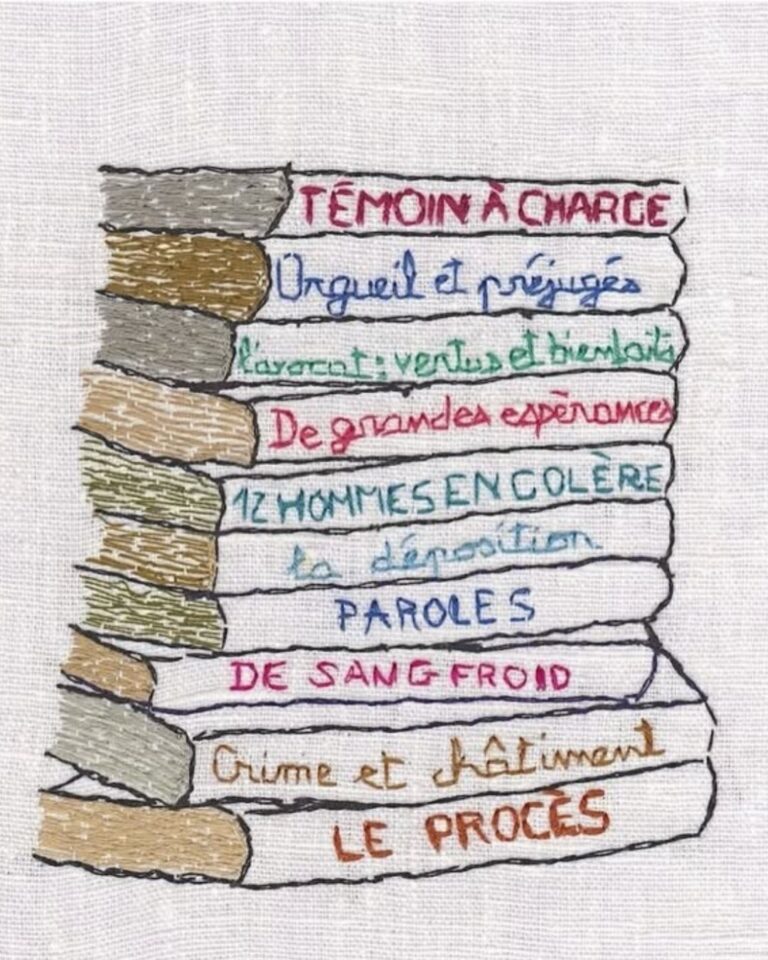 TÉMOIN À CHARGE
Orgueil et préjugés
l'avocat : vertus et bienfaits
De grandes espèrances
12 HOMMES EN COLÈRE
la déposition
PAROLES
DE SANG FROID
Crime et châtiment
LE PROCÈS